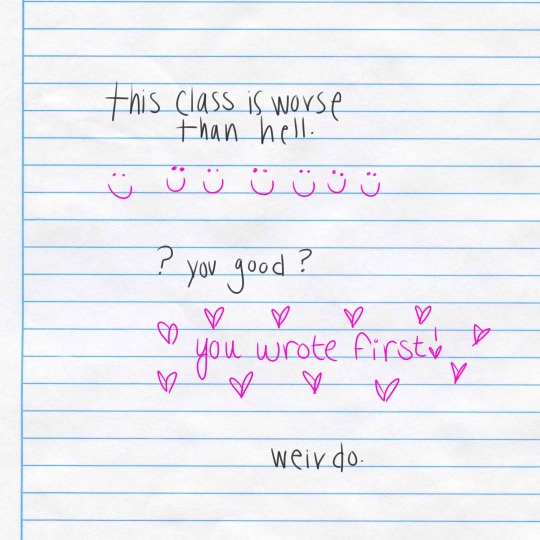 this class is worse
than hell.
? you good ?
you wrote first!
weirdo.